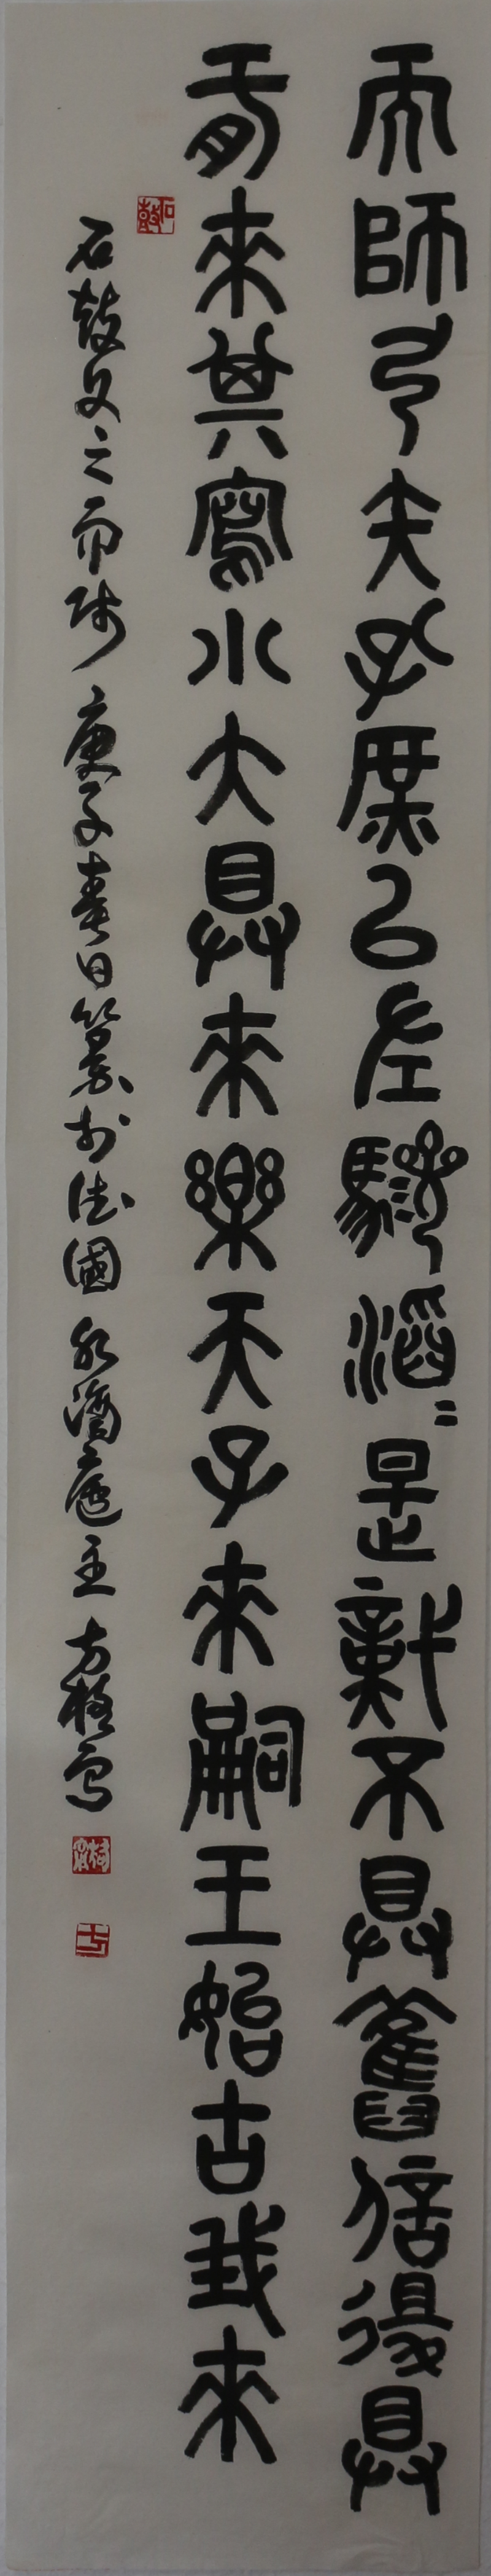 而師弓矢孔庶㠯左驂滔〻是不具舊佶復具
盱來其寫小大具來樂天子來嗣王始古我來
石鼓
石鼓文之而師 庚子春日篆於德國 庵主 方 寫
方